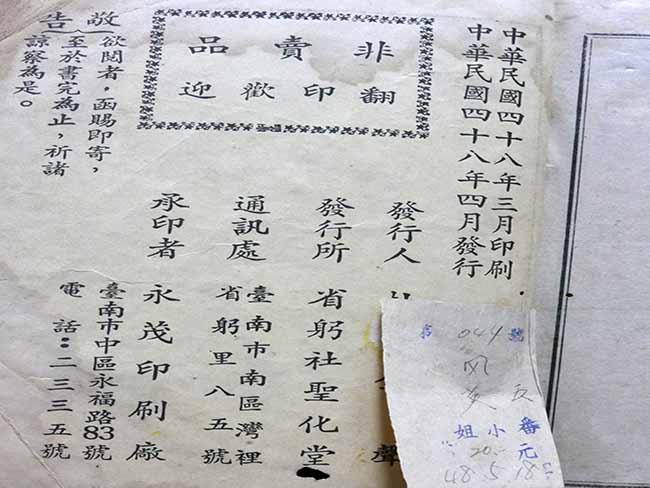 中華民國四十八年三月印刷
中華民國四十八年四月發行
非賣品
翻印歡迎
發行人 聲
發行所 省躬社聖化堂
通訊處 臺南市南區灣裡
省躬里八五號
承印者 永茂印刷廠
臺南市中區永福路83號
電話：二三三五號
敬告
欲閱者，函賜即寄，
至於書完為止，祈諸
諒察為是。
044號
風
番小姐
元20.-
48.5.18